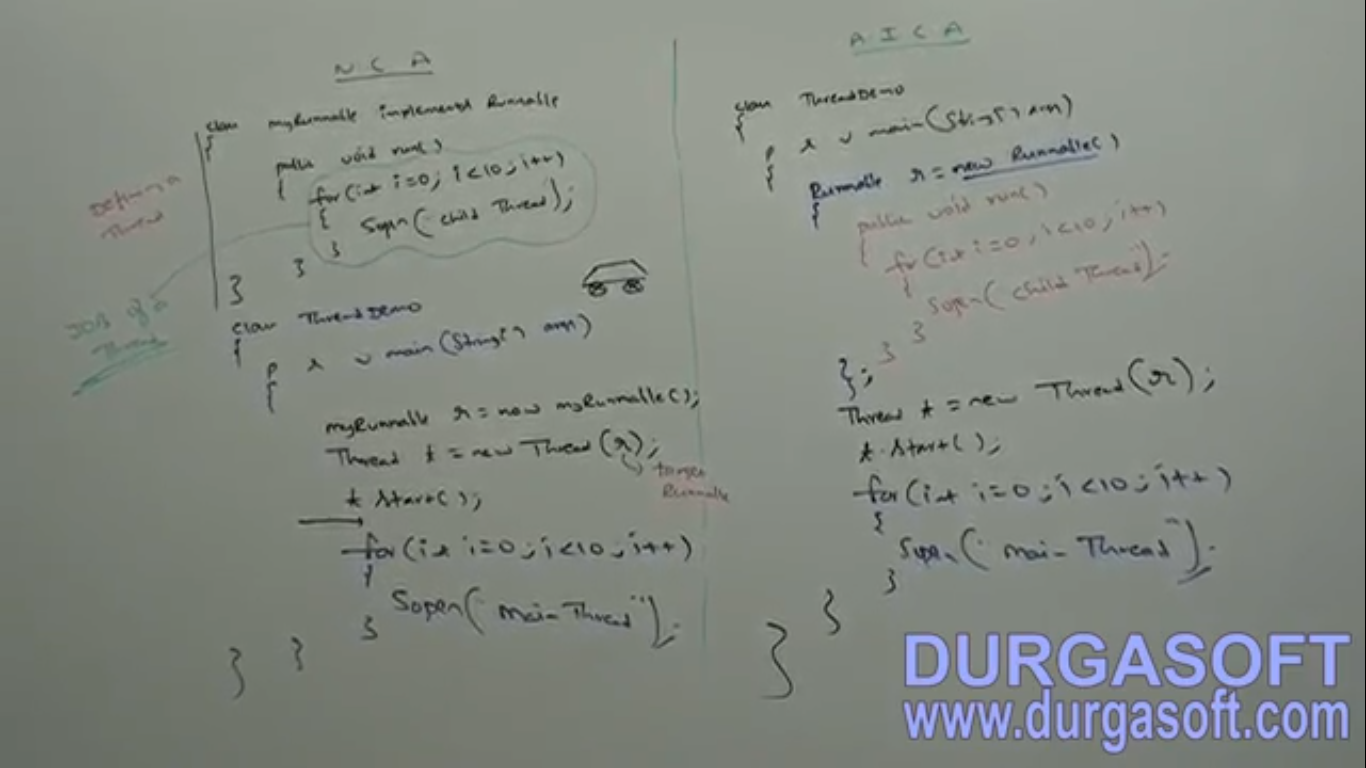 N C A
class myRunnable implements Runnable
{
public void run()
{ for(int i=0; i<10; i++)
{ Sopln("child Thread");
}
}
}
Defining a
Thread
JOB of a
Thread
class ThreadDemo
{
p s v main(String[] args)
{
myRunnable r = new myRunnable();
Thread t = new Thread(r);
target
Runnable
t.start();
for(int i=0; i<10; i++)
{
Sopln("main Thread");
}
}
}
A I C A
class ThreadDemo
{
p s v main(String[] args)
{
Runnable r = new Runnable()
{
public void run()
{
for(int i=0; i<10; i++)
{
Sopln("child Thread");
}
}
};
Thread t = new Thread(r);
t.start();
for(int i=0; i<10; i++)
{
Sopln("main Thread");
}
}
}
DURGASOFT
www.durgasoft.com